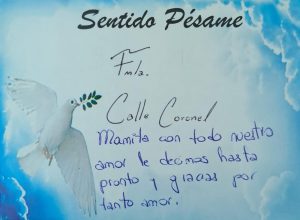 Sentido Pésame
Fmla.
Calle Coronel
Mamita con todo nuestro
amor le decimos hasta
pronto y gracias por
tanto amor.